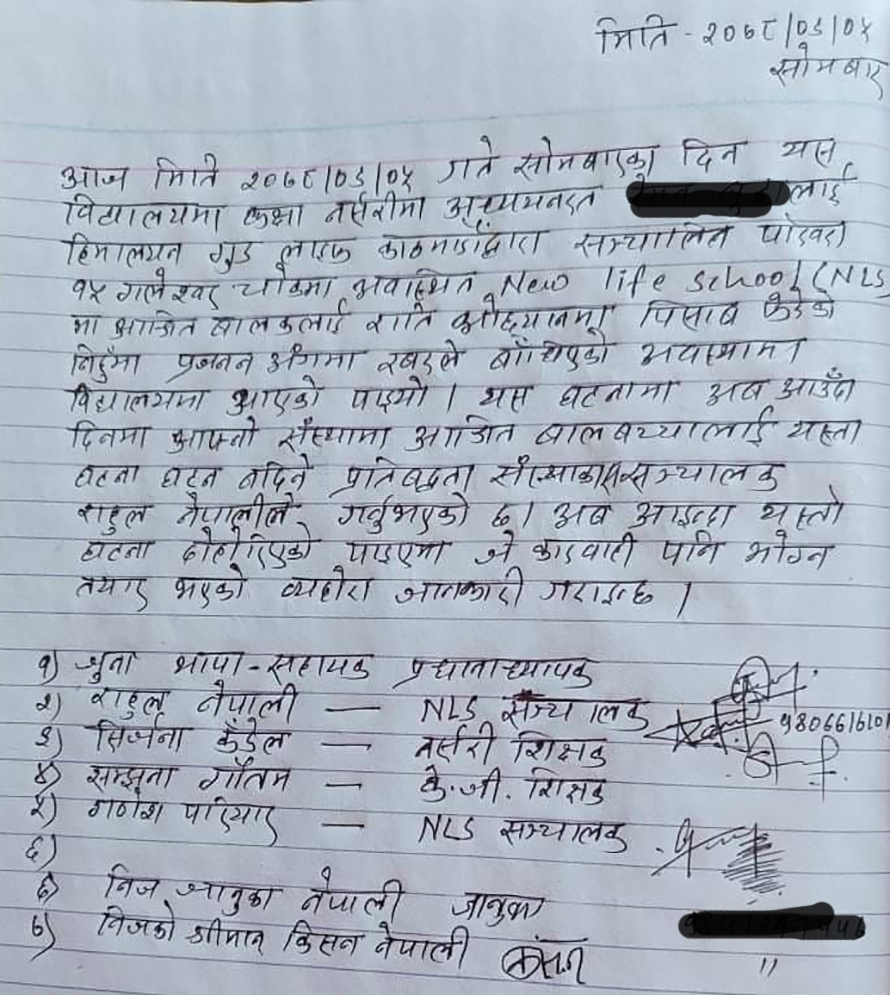 मिति - २०७८/०३/०४
सोमबार
आज मिति २०७८/०३/०४ गते सोमबारका दिन यस
विद्यालयमा कक्षा नर्सरीमा अध्ययनरत लाई
हिमालयन गुड लाइफ काठमाडौंद्वारा सञ्चालित पोखरा
१४ गलेश्वर चोकमा अवास्थित New life school (NLS)
मा आश्रित बालकलाई राति ओछ्यानमा पिसाब फेरेको
निहुँमा प्रजनन अंगमा रबरले बाँधिएको अवस्थामा
विद्यालयमा आएको पाइयो । यस घटनामा अब आउँदा
दिनमा आफ्नो संस्थामा आश्रित बालबच्चालाई यस्ता
घटना घट्न नदिने प्रतिबद्धता सञ्चालक
राहुल नेपालीले गर्नुभएको छ। अब आइन्दा यस्तो
घटना दोहोरिएको पाइएमा जे कारवाही पनि भोग्न
तयार भएको व्यहोरा जानकारी गराइन्छ ।
१) जुना थापा - सहायक प्रधानाध्यापक
२) राहुल नेपाली — NLS सञ्चालक
३) सिर्जना कँडेल — नर्सरी शिक्षक
४) सम्झना गौतम — के.जी. शिक्षक
५) गणेश परियार — NLS सञ्चालक
६)
६) निज जानुका नेपाली जानुका
७) निजको श्रीमान किसन नेपाली किसन "